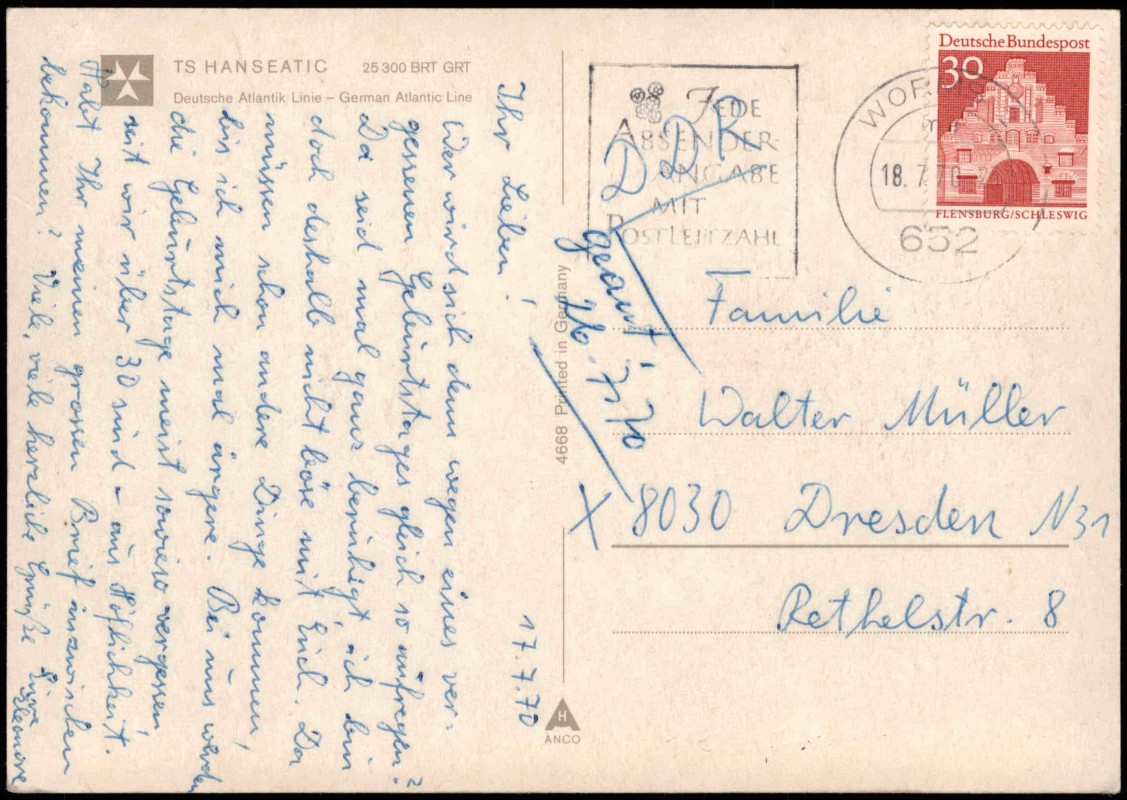 TS HANSEATIC 25 300 BRT GRT
Deutsche Atlantik Linie – German Atlantic Line
17.7.70
Ihr Lieben!
Wer wird sich denn wegen eines ver-
gessenen Geburtstages gleich so aufregen?
Da seid mal ganz beruhigt ich bin
doch deshalb nicht böse mit Euch. Da
müssen schon andere Dinge kommen,
bis ich mich mal ärgere. Bei uns werden
die Geburtstage meist sowieso vergessen
seit wir über 30 sind – aus Höflichkeit.
Habt Ihr meinen grossen Brief inzwischen
bekommen? Viele, viele herzliche Grüße Eure
Eleonore
4668 Printed in Germany
H
ANCO
JEDE
ABSENDER-
ANGABE
MIT
POSTLEITZAHL
WORMS
18.7.70
652
Deutsche Bundespost
30
FLENSBURG/SCHLESWIG
DDR
geantw.
26.7.70
Familie
Walter Müller
X 8030 Dresden N31
Rethelstr. 8